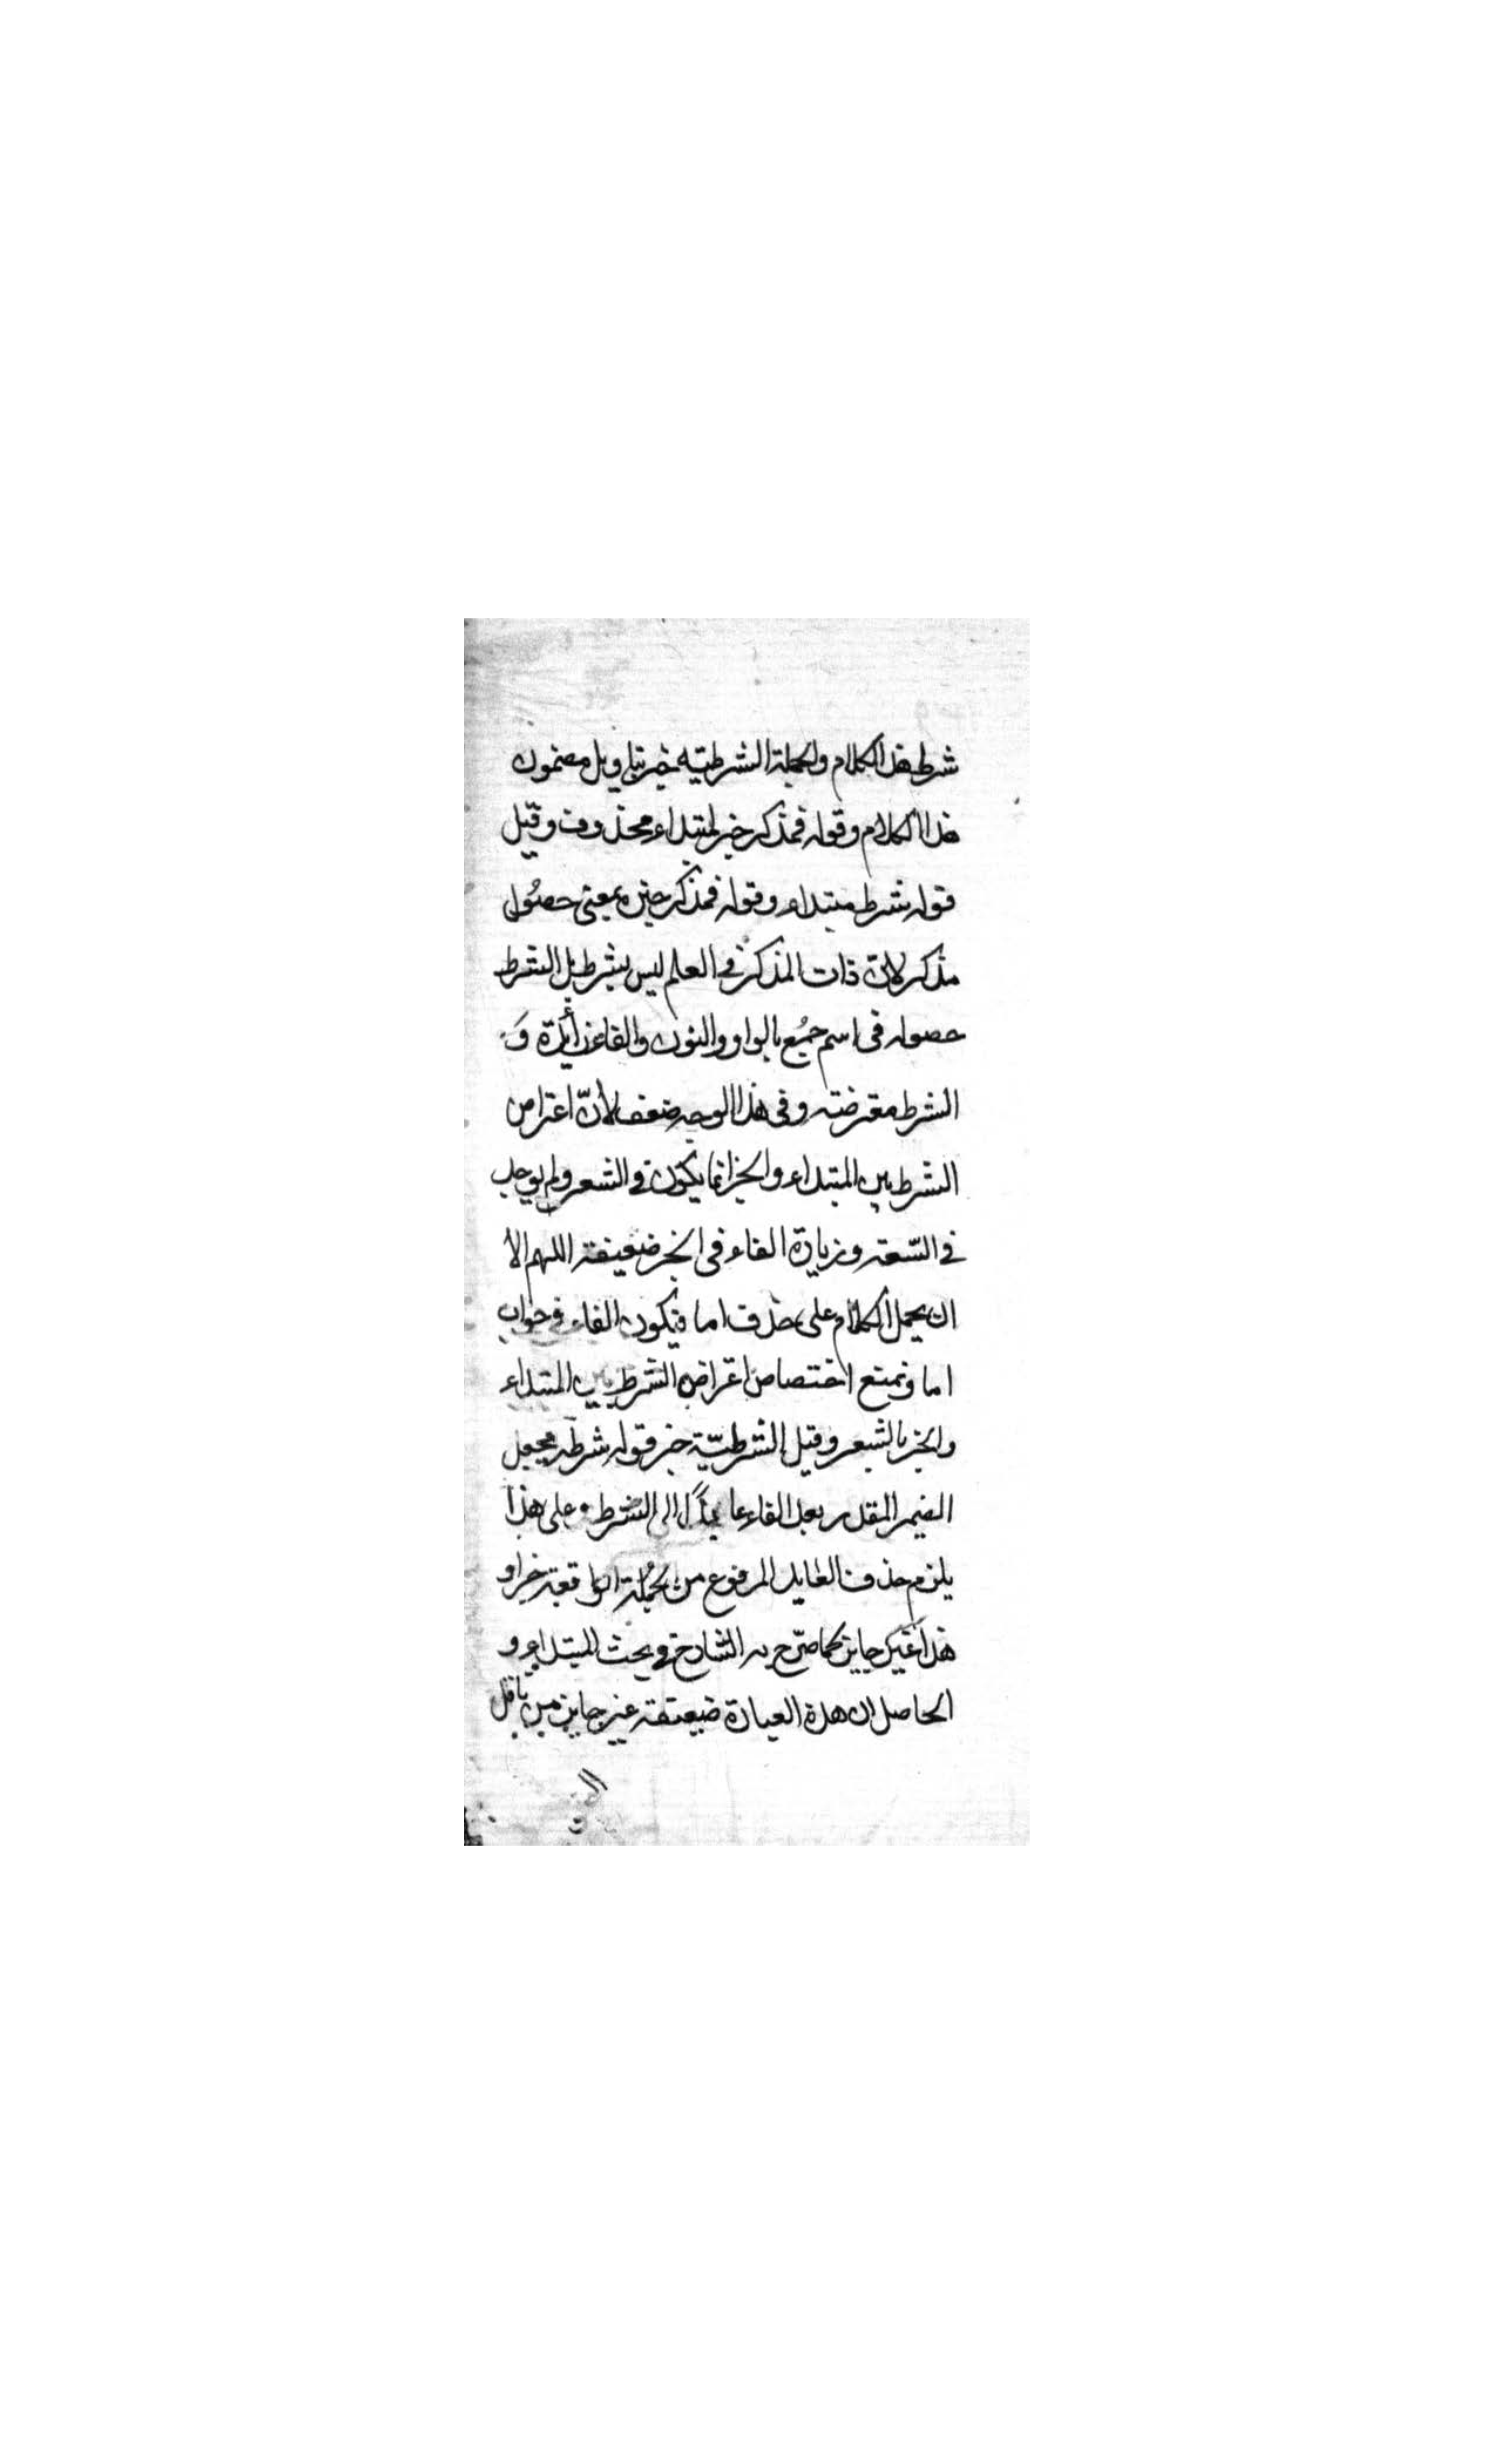 شرط هذا الكلام والجملة الشرطية خبر بتاويل مضمون
هذا الكلام وقوله فمذكر خبر لمبتداء محذوف وقيل
قوله شرط مبتداء وقوله فمذكر خبره بمعنى حصُول
مذكر لان ذات المذكر في العلم ليس بشرط بل الشرط
حصوله فى اسم جُمع بالواو والنون والفاء زائدة وَ
الشرط معترضته وفى هذا الوجه ضعف لأنّ اعتراض
الشرط بين المبتداء والخبر انما يكون في الشعر ولم يوجد
في السّعته وزيادة الفاء فى الخبر ضعيفته اللهم الا
ان يحمل الكلام على حذف اما فيكون الفاء في جواب
اما ونمنع اختصاص اعتراض الشرط بين المبتداء
والخبر بالشعر وقيل الشرطيّة خبر قوله شرطه بجعل
الضمير المقدر بعد الفاء عايداً الى الشرط وعلى هذا
يلزم حذف العايد المرفوع من الجُملة الواقعته خبرا و
هذا غير جايز كما صرّح به الشارح في بحث المبتداء و
الحاصل ان هذه العبارة ضعيفته غير جايز من باقل